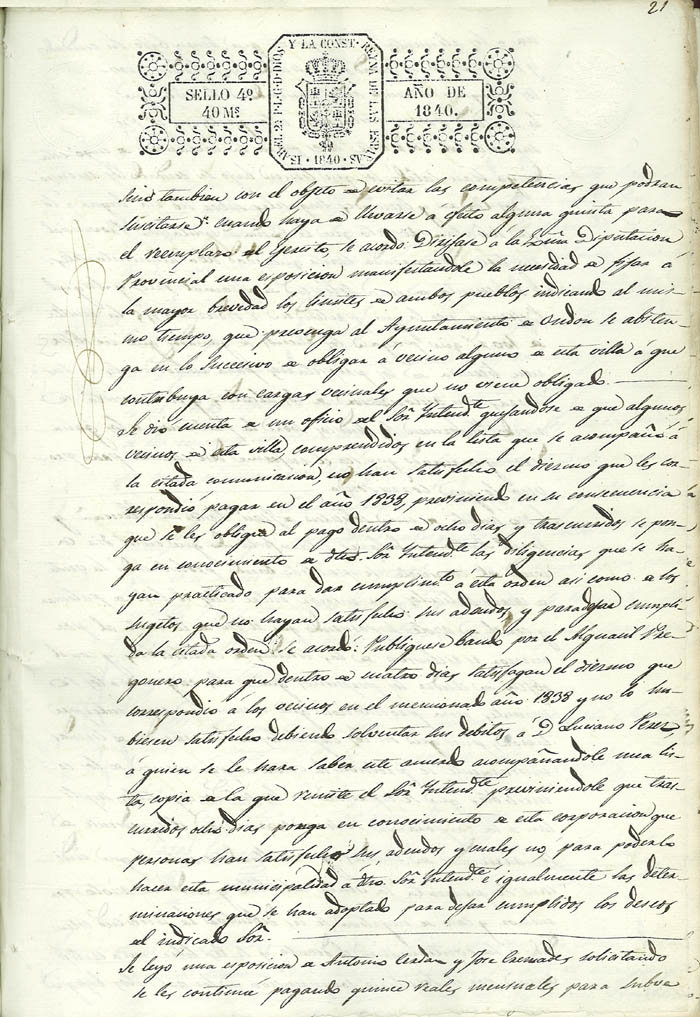 21
ISABEL 2ª P.L.G.D.DIOS Y LA CONST. REYNA DE LAS ESPAÑAS · 1840 ·
SELLO 4º 40 Mˢ
AÑO DE 1840.
tambien con el objeto de evitar las competencias que podran
sucitarse cuando haya de llevarse a efeto alguna quinta para
el reemplazo del Gercito, se acordo: Dirijase á la Exma Diputacion
Provincial una esposicion manifestandole la necesidad de fijar á
la mayor brevedad los limites de ambos pueblos indicando al mis-
mo tiempo, que prevenga al Ayuntamiento de se absten-
ga en lo sucesivo de obligar á vecino alguno de esta villa á que
contribuya con cargas vecinales que no viene obligado
Se dió cuenta de un oficio del Sôr Yntendte quejandose de que algunos
vecinos de esta villa, comprendidos en la lista que se acompañó á
la citada comunicacion, no han satisfecho el diezmo que les cor-
respondió pagar en el año 1838, previniendo en su consecuencia
que se les obligue al pago dentro de ocho dias y trascurridos se pon-
ga en conocimiento de dho. Sôr Yntendte las diligencias que se ha-
yan practicado para dar cumplimto á esta orden asi como de los
sugetos que no hayan satisfecho sus adeudos, y para dejar cumpli-
da la citada orden: se acordó: Publiquese bando por el Alguacil Pre-
gonero para que dentro de cuatro dias satisfagan el diezmo que
correspondió á los vecinos en el mencionado año 1838 y no lo hu-
biesen satisfecho debiendo solventar sus debitos á D Luciano Perez
á quien se le hara saber este acuerdo acompañandole una lis-
ta, copia de la que remite el Sôr Yntendte previniendole que tras-
curridos ocho dias ponga en conocimiento de esta corporacion que
personas han satisfecho sus adeudos y cuales no, para poderlo
hacer esta municipalidad á dho. Sôr Yntendte é igualmente las deter-
minaciones que se han adoptado para dejar cumplidos los deseos
del indicado Sôr.
Se leyó una esposicion de Antonio Cerdan y Jose Cremades solicitando
se les continue pagando quince reales mensuales para subve